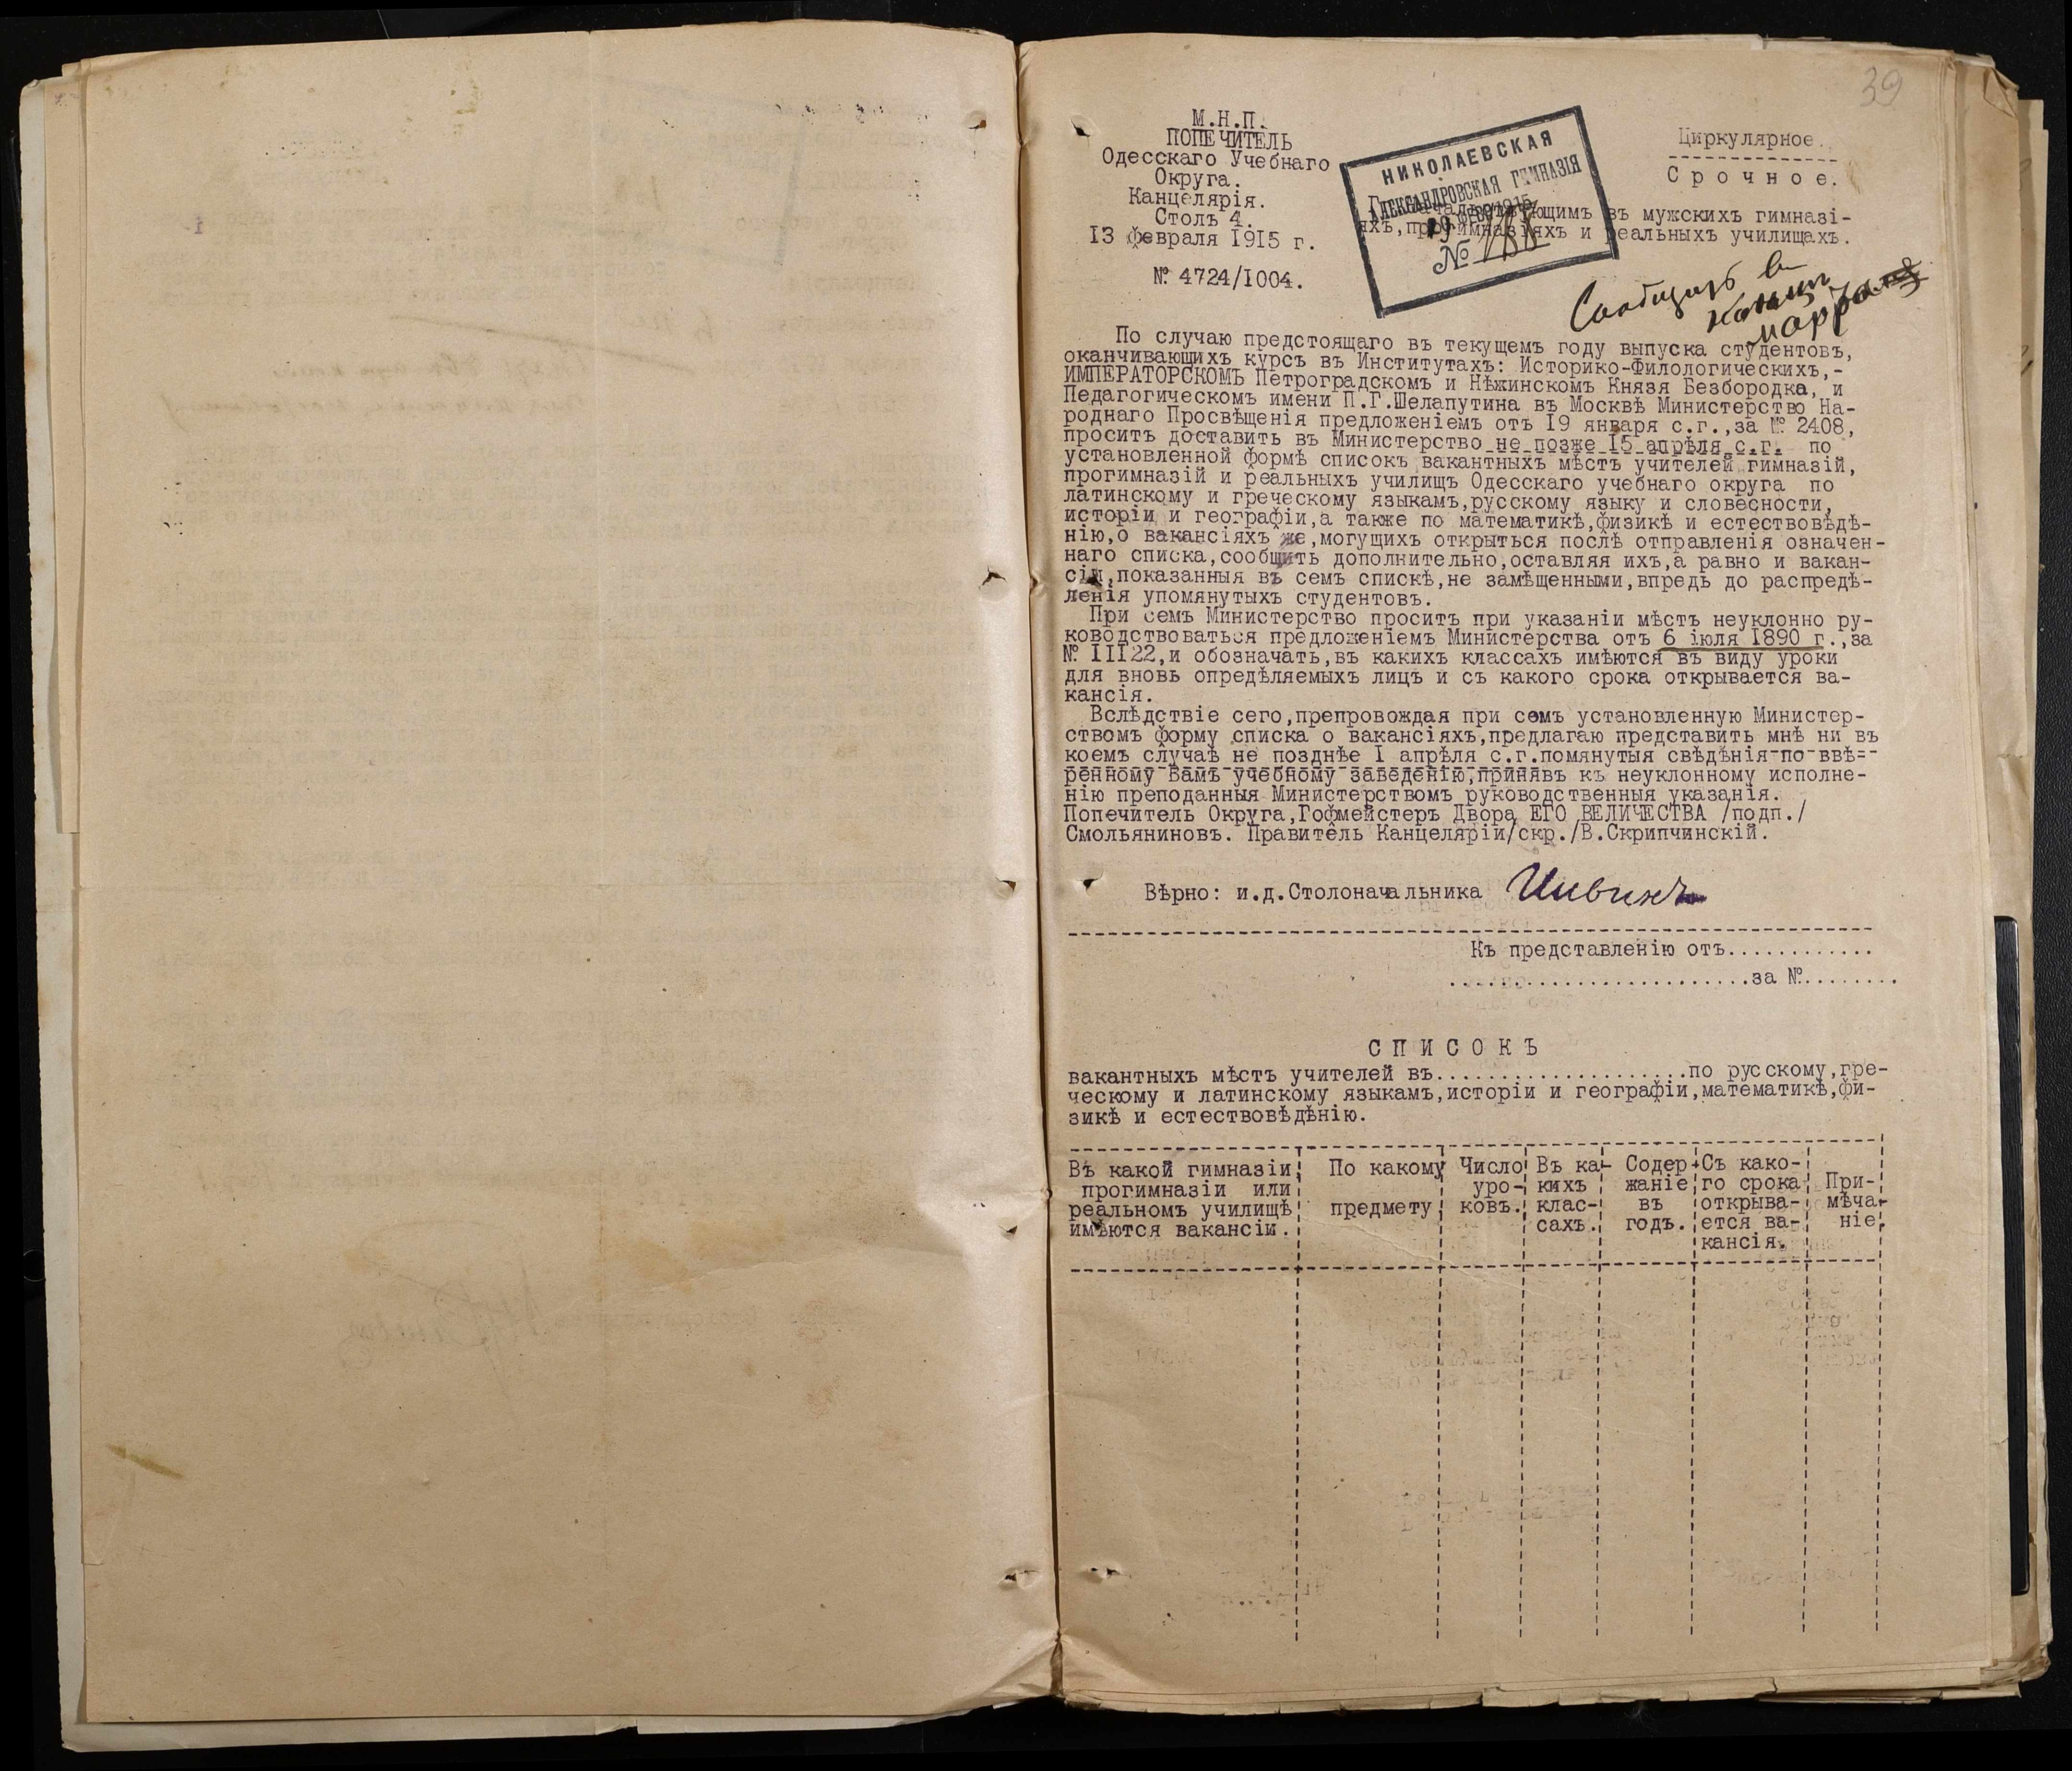 39
М.Н.П.
ПОПЕЧИТЕЛЬ
Одесскаго Учебнаго
Округа.
Канцелярія.
Столъ 4.
13 февраля 1915 г.
№ 4724/1004.
НИКОЛАЕВСКАЯ
АЛЕКСАНДРОВСКАЯ ГИМНАЗІЯ
19 ФЕВ 1915
№ 188
Циркулярное.
Срочное.
Начальствующимъ въ мужскихъ гимназі-
яхъ,прогимназіяхъ и реальныхъ училищахъ.
Сообщить въ
концѣ
марта
По случаю предстоящаго въ текущемъ году выпуска студентовъ,
оканчивающихъ курсъ въ Институтахъ: Историко-Филологическихъ,-
ИМПЕРАТОРСКОМЪ Петроградскомъ и Нѣжинскомъ Князя Безбородка, и
Педагогическомъ имени П.Г.Шелапутина въ Москвѣ Министерство На-
роднаго Просвѣщенія предложеніемъ отъ 19 января с.г.,за № 2408,
проситъ доставить въ Министерство не позже 15 апрѣля с.г. по
установленной формѣ списокъ вакантныхъ мѣстъ учителей гимназій,
прогимназій и реальныхъ училищъ Одесскаго учебнаго округа по
латинскому и греческому языкамъ,русскому языку и словесности,
исторіи и географіи,а также по математикѣ,физикѣ и естествовѣдѣ-
нію,о вакансіяхъ же,могущихъ открыться послѣ отправленія означен-
наго списка,сообщить дополнительно,оставляя ихъ,а равно и вакан-
сіи,показанныя въ семъ спискѣ,не замѣщенными,впредь до распредѣ-
ленія упомянутыхъ студентовъ.
При семъ Министерство проситъ при указаніи мѣстъ неуклонно ру-
ководствоваться предложеніемъ Министерства отъ 6 іюля 1890 г.,за
№ III22,и обозначать,въ какихъ классахъ имѣются въ виду уроки
для вновь опредѣляемыхъ лицъ и съ какого срока открывается ва-
кансія.
Вслѣдствіе сего,препровождая при семъ установленную Министер-
ствомъ форму списка о вакансіяхъ,предлагаю представить мнѣ ни въ
коемъ случаѣ не позднѣе I апрѣля с.г.помянутыя свѣдѣнія по ввѣ-
ренному Вамъ учебному заведенію,принявъ къ неуклонному исполне-
нію преподанныя Министерствомъ руководственныя указанія.
Попечитель Округа,Гофмейстеръ Двора ЕГО ВЕЛИЧЕСТВА /подп./
Смольяниновъ. Правитель Канцеляріи/скр./В.Скрипчинскій.
Вѣрно: и.д.Столоначальника
Къ представленію отъ............
.........................за №........
СПИСОКЪ
вакантныхъ мѣстъ учителей въ.....................по русскому,гре-
ческому и латинскому языкамъ,исторіи и географіи,математикѣ,фи-
зикѣ и естествовѣдѣнію.
Въ какой гимназіи,
прогимназіи или
реальномъ училищѣ
имѣются вакансіи.
По какому
предмету
Число
уро-
ковъ.
Въ ка-
кихъ
клас-
сахъ.
Содер-
жаніе
въ
годъ.
Съ како-
го срока
открыва-
ется ва-
кансія.
При-
мѣча-
ніе.